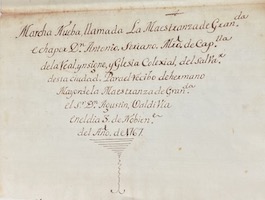 Marcha Nueba, llamada La Maestranza de Gran.da
echa por D.n Antonio Soriano, Mro. de Cap.lla
de la Real, ynsigne, y Yglesia Colexial, del Salva.r
desta ciudad, Para el recibo de hermano
Mayor de la Maestranza de Gran.da
el S.r D.n Agustin, Valdivia
en el dia 8 de Nobien.e
del Año, de 1767.